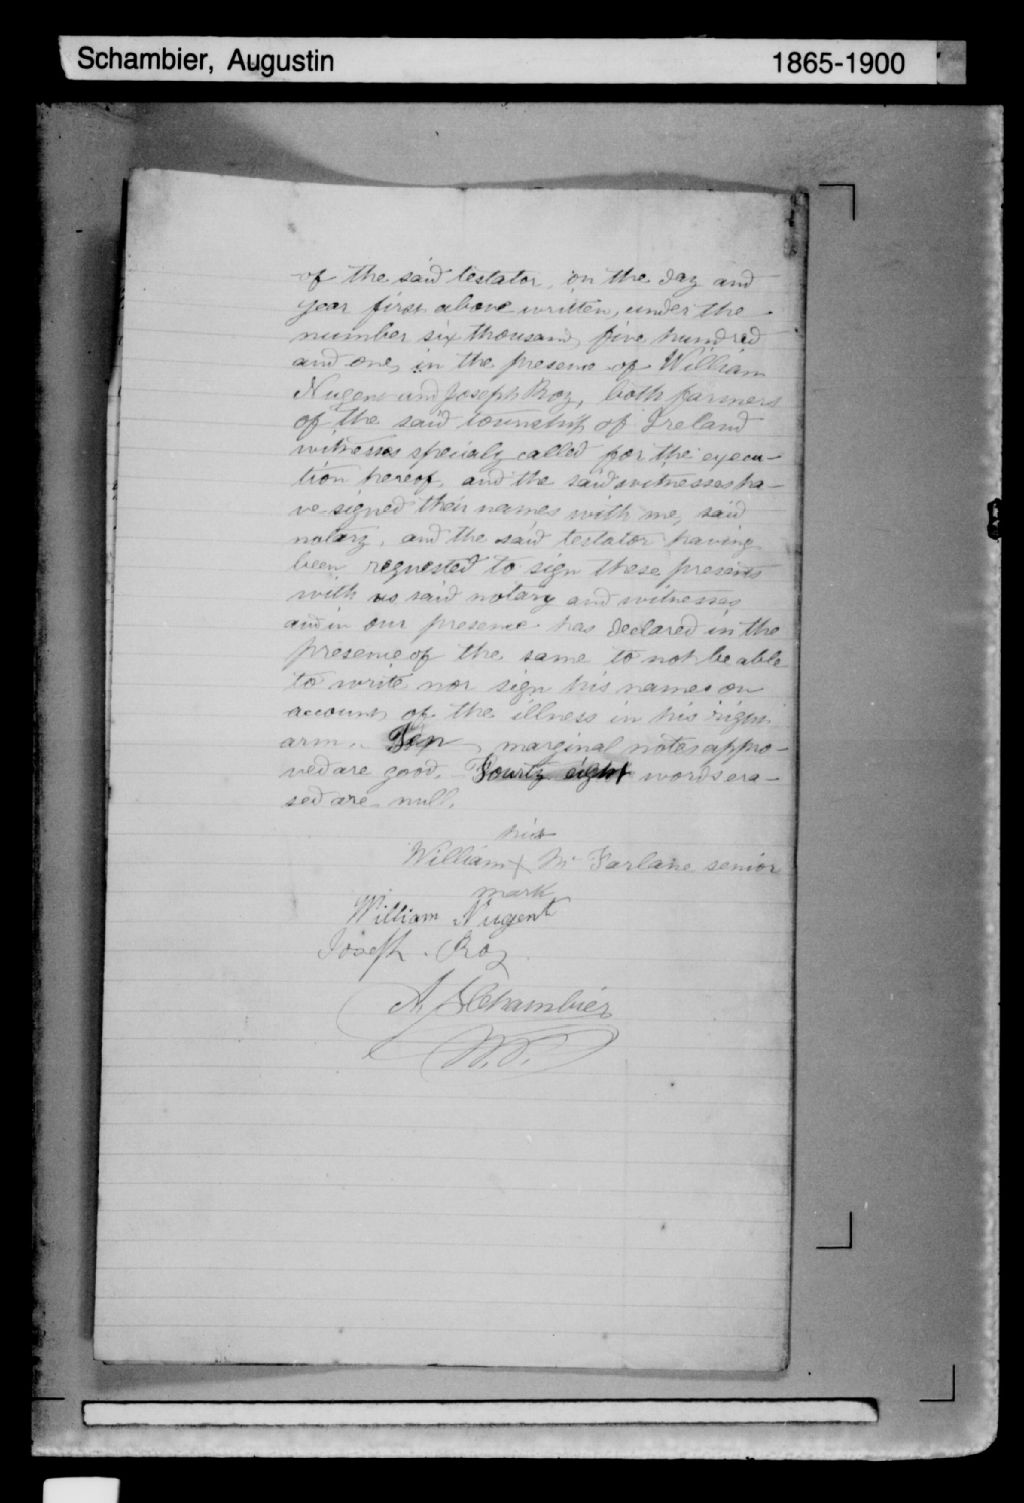 Schambier, Augustin 1865-1900
of the said testator, on the day and
year first above written, under the
number six thousand five hundred
and one, in the presence of William
Nugent and Joseph Roy, both farmers
of the said township of Ireland
witnesses specialy called for the execu-
tion hereof, and the said witnesses ha-
ve signed their names with me, said
notary, and the said testator having
been requested to sign these presents
with us said notary and witnesses
and in our presence has declared in the
presence of the same to not be able
to write nor sign his names on
account of the illness in his right
arm. Ten marginal notes appro-
ved are good. Fourty eight words era-
sed are null.
his
William X Mc Farlane senior
mark
William Nugent
Joseph Roy
A. Schambier
N.P.